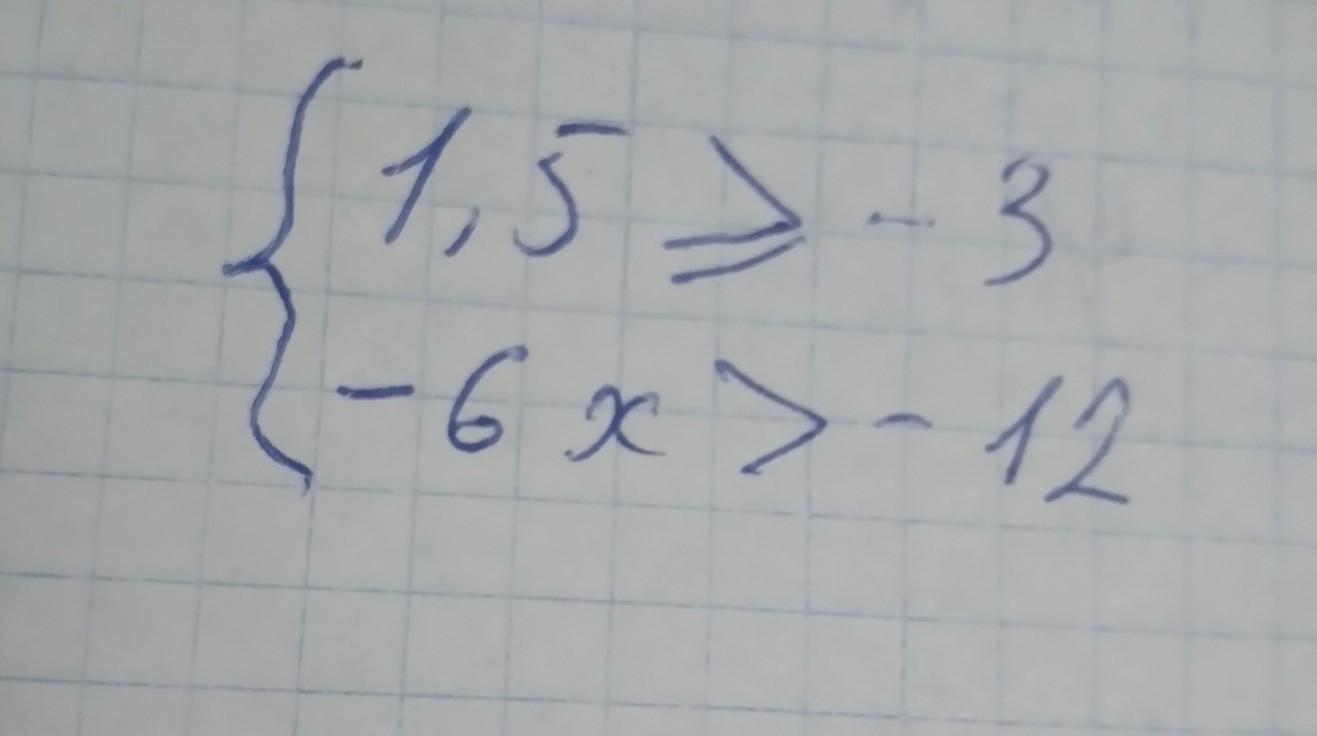 1,5 ⩾ - 3
- 6 x > - 12